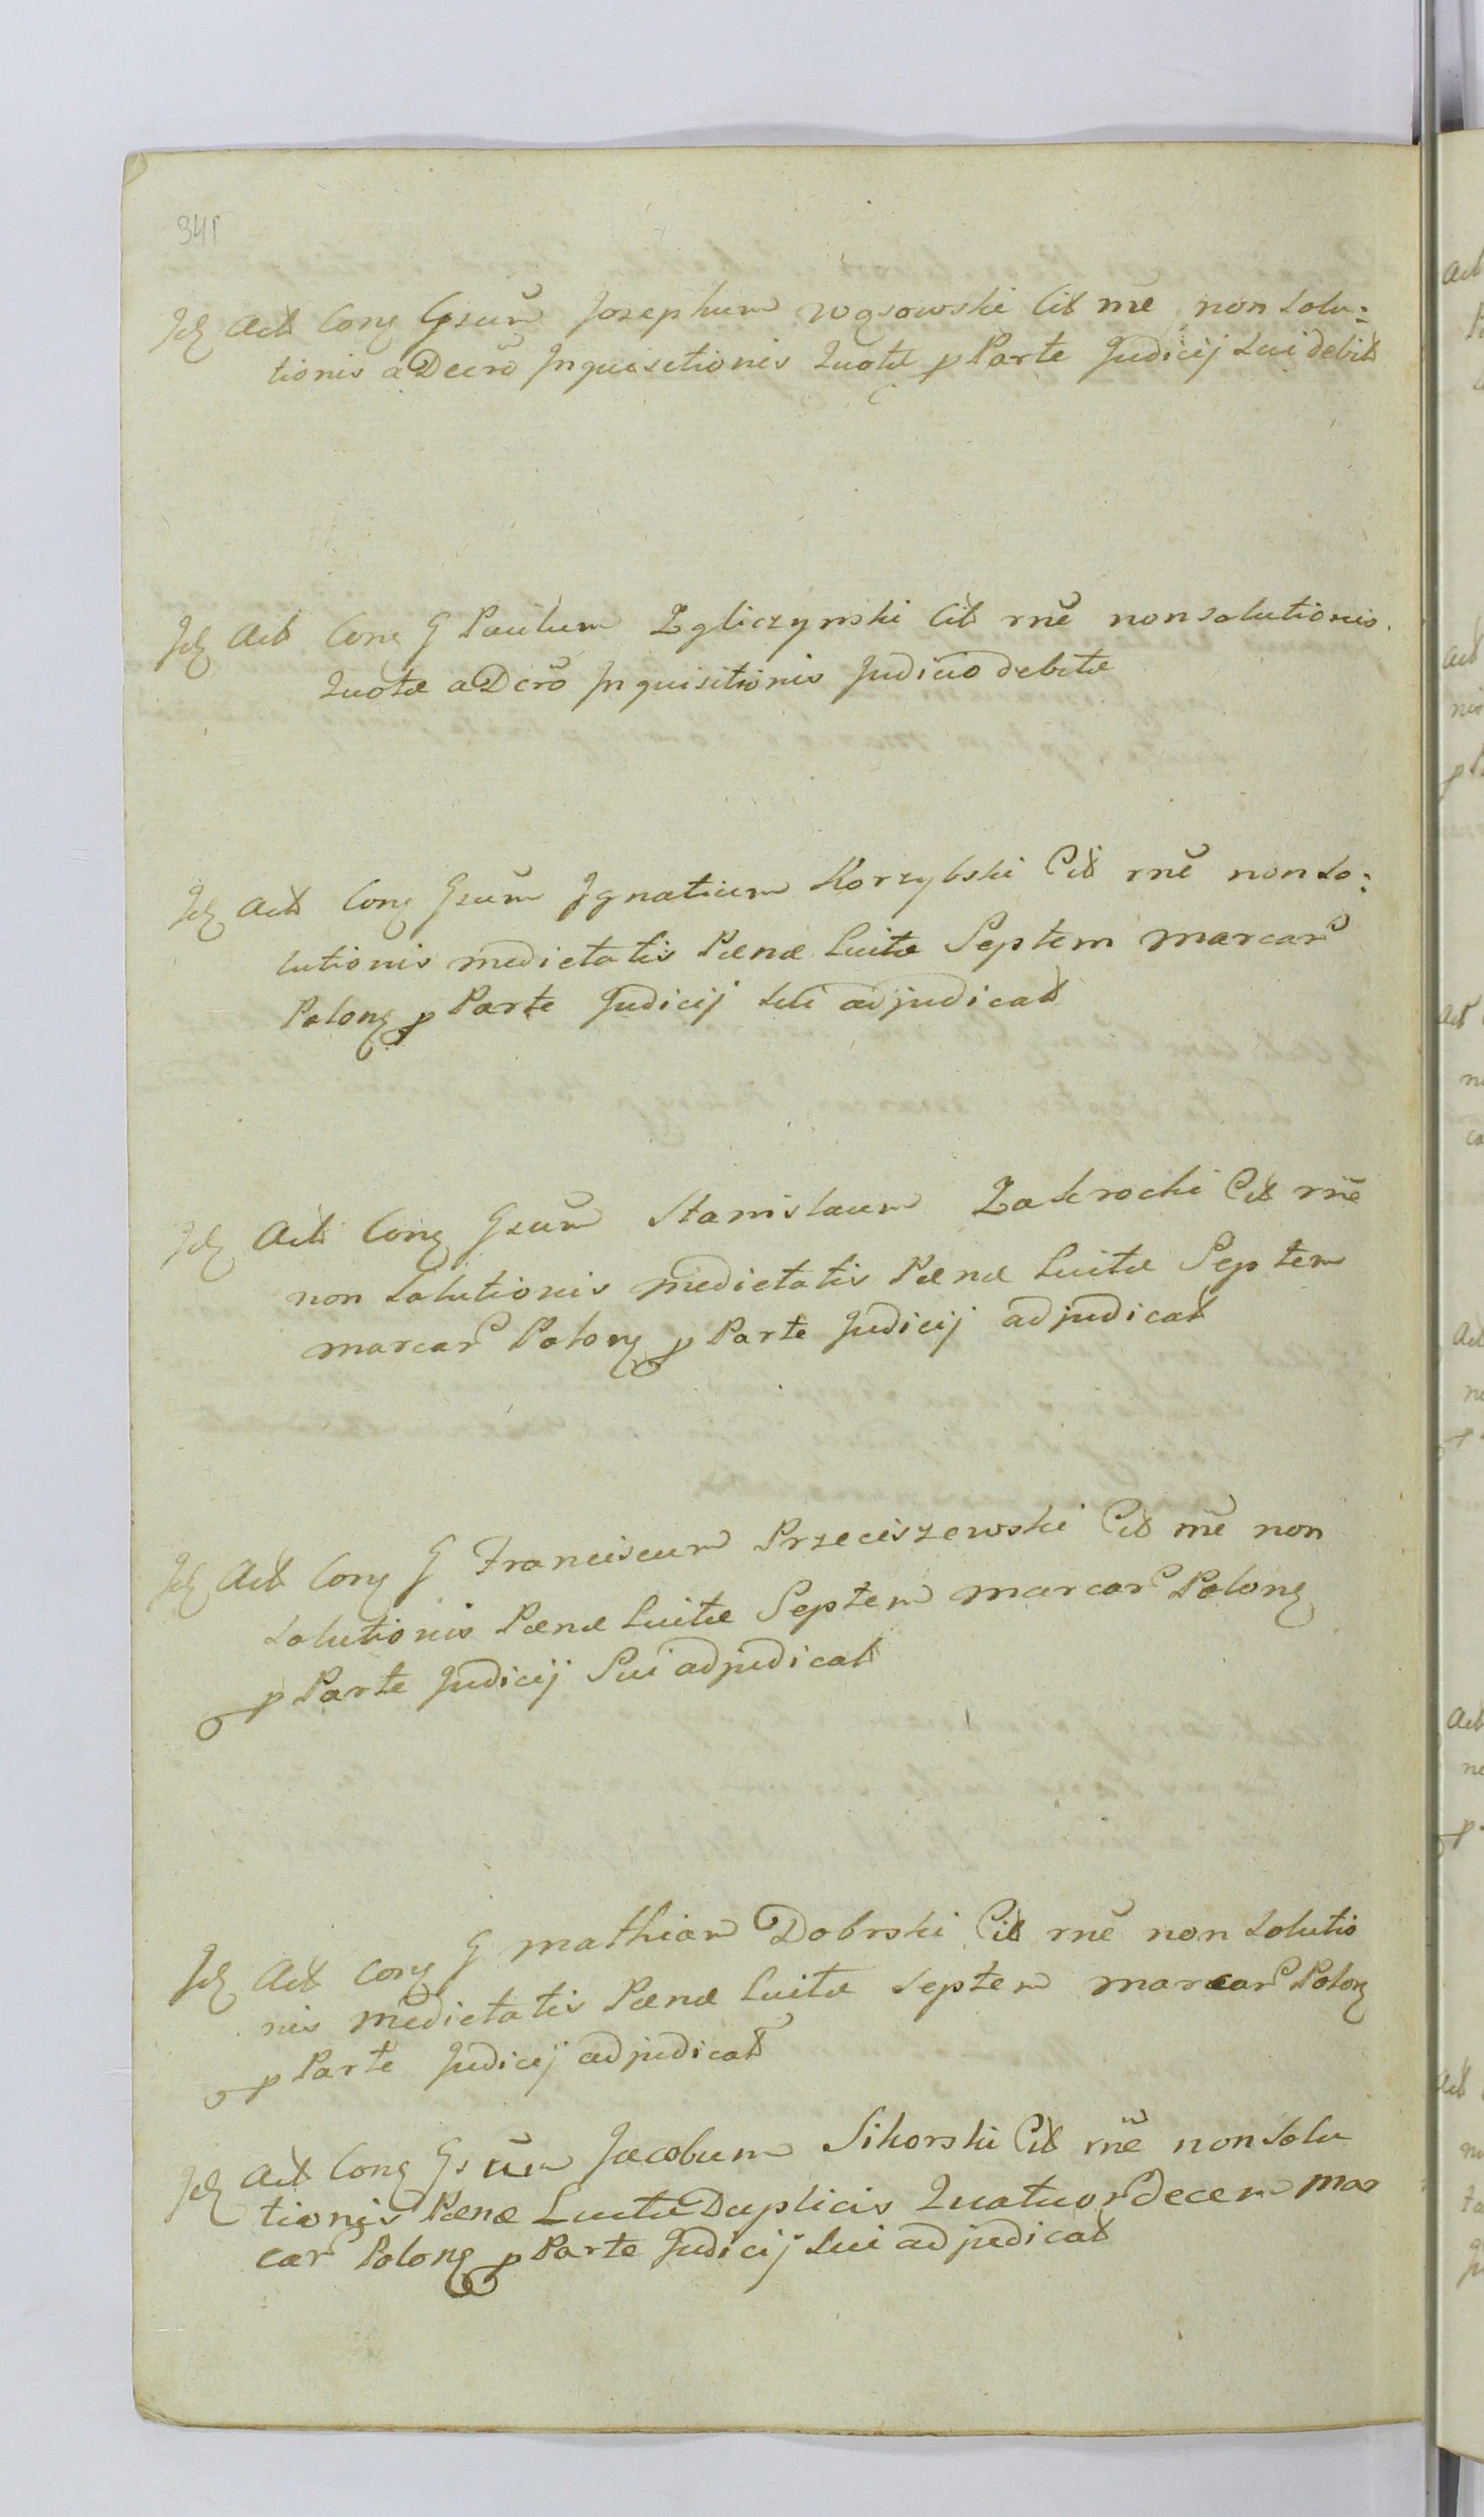 341
Id Act Cong Gsum Josephum Wąsowski Cit rne non Solu:
tionis a Decro Inquisitionis Quotæ p Parte Judicij Sui debit
Id Act Cong G Paulum Zgliczynski Cit rne non Solutionis
Quotæ a Dcro Inquisitionis Judicio debitæ
Id Act Cong Gsum Ignatium Korzybski Cit rne non So:
lutionis medietatis Pænæ Luitæ Septem marcar
Polong p Parte Judicij Sui adjudicat
Id Act Cong Gsum Stanislaum Zakrocki Cit rne
non Solutionis medietatis Pænæ Luitæ Septem
marcar Polong p Parte Judicij adjudicat
Id Act Cong G Franciscum Przeciszewski Cit rne non
Solutionis Pænæ Luitæ Septem marcar Polong
p Parte Judicij Sui adjudicat
Id Act Cong G Mathiam Dobrski Cit rne non Solutio
nis medietatis Pænæ Luitæ Septem marcar Polong
p Parte Judicij adjudicat
Id Act Cong Gsum Jacobum Sikorski Cit rne non Solu
tionis Pænæ Luitæ Duplicis Quatuordecem mar
car Polong p Parte Judicij Sui adjudicat